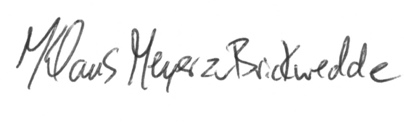 Klaus Meyer zu Brickwedde